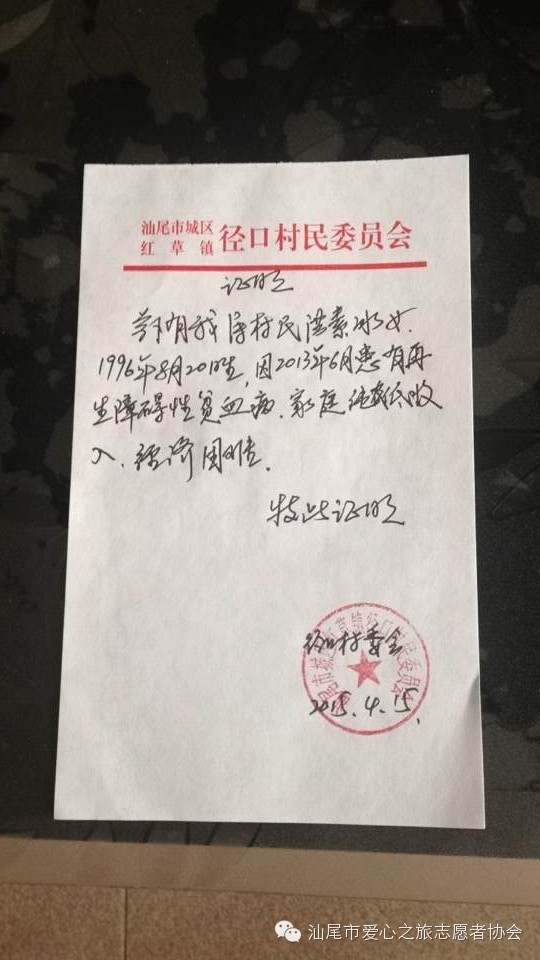 汕尾市城区
红草镇 径口村民委员会
证明
兹有我居村民洪素冰女.
1996年8月20日生,因2013年6月患有再
生障碍性贫血病、家庭纯属低收
入、经济困难.
特此证明
径口村委会
2015.4.15.
汕尾市城区红草镇径口村民委员会
汕尾市爱心之旅志愿者协会